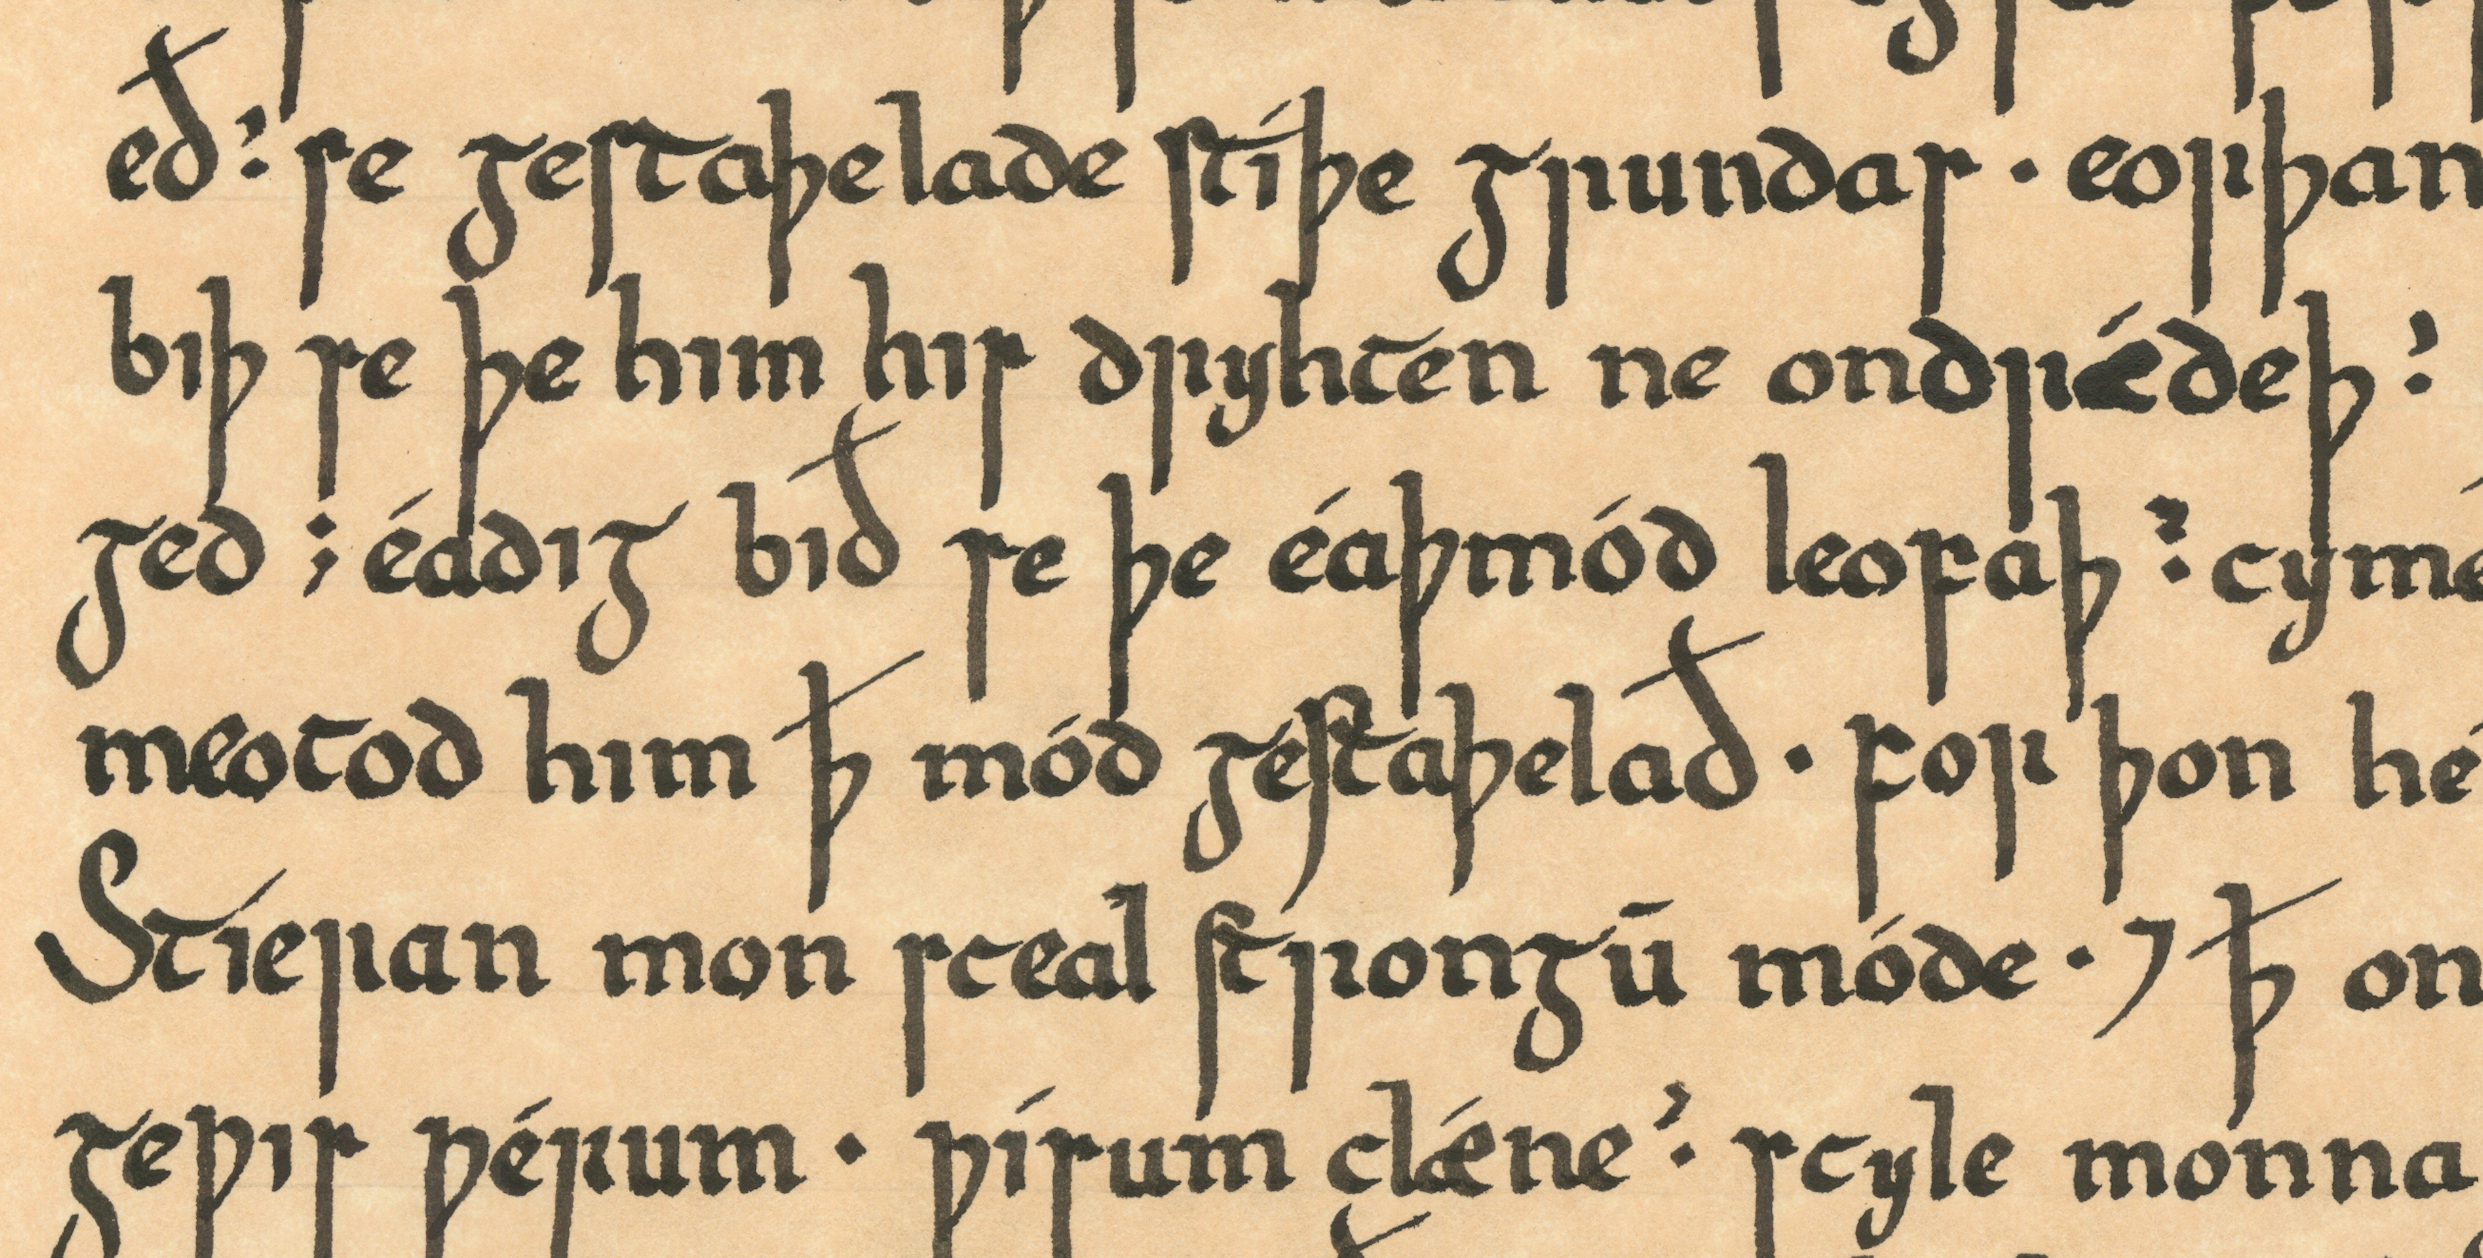 eð: se gestaþelade stíþe grundas · eorþan
biþ se þe him his dryhten ne ondrǽdeþ:
ged ; éadig bið se þe éaþmód leofaþ: cymé
meotod him ꝥ mód géstaþelað · for þon hé
Stíeran mon sceal strongū móde · ⁊ ꝥ on
gewis wérum · wísum clǽne: scyle monna